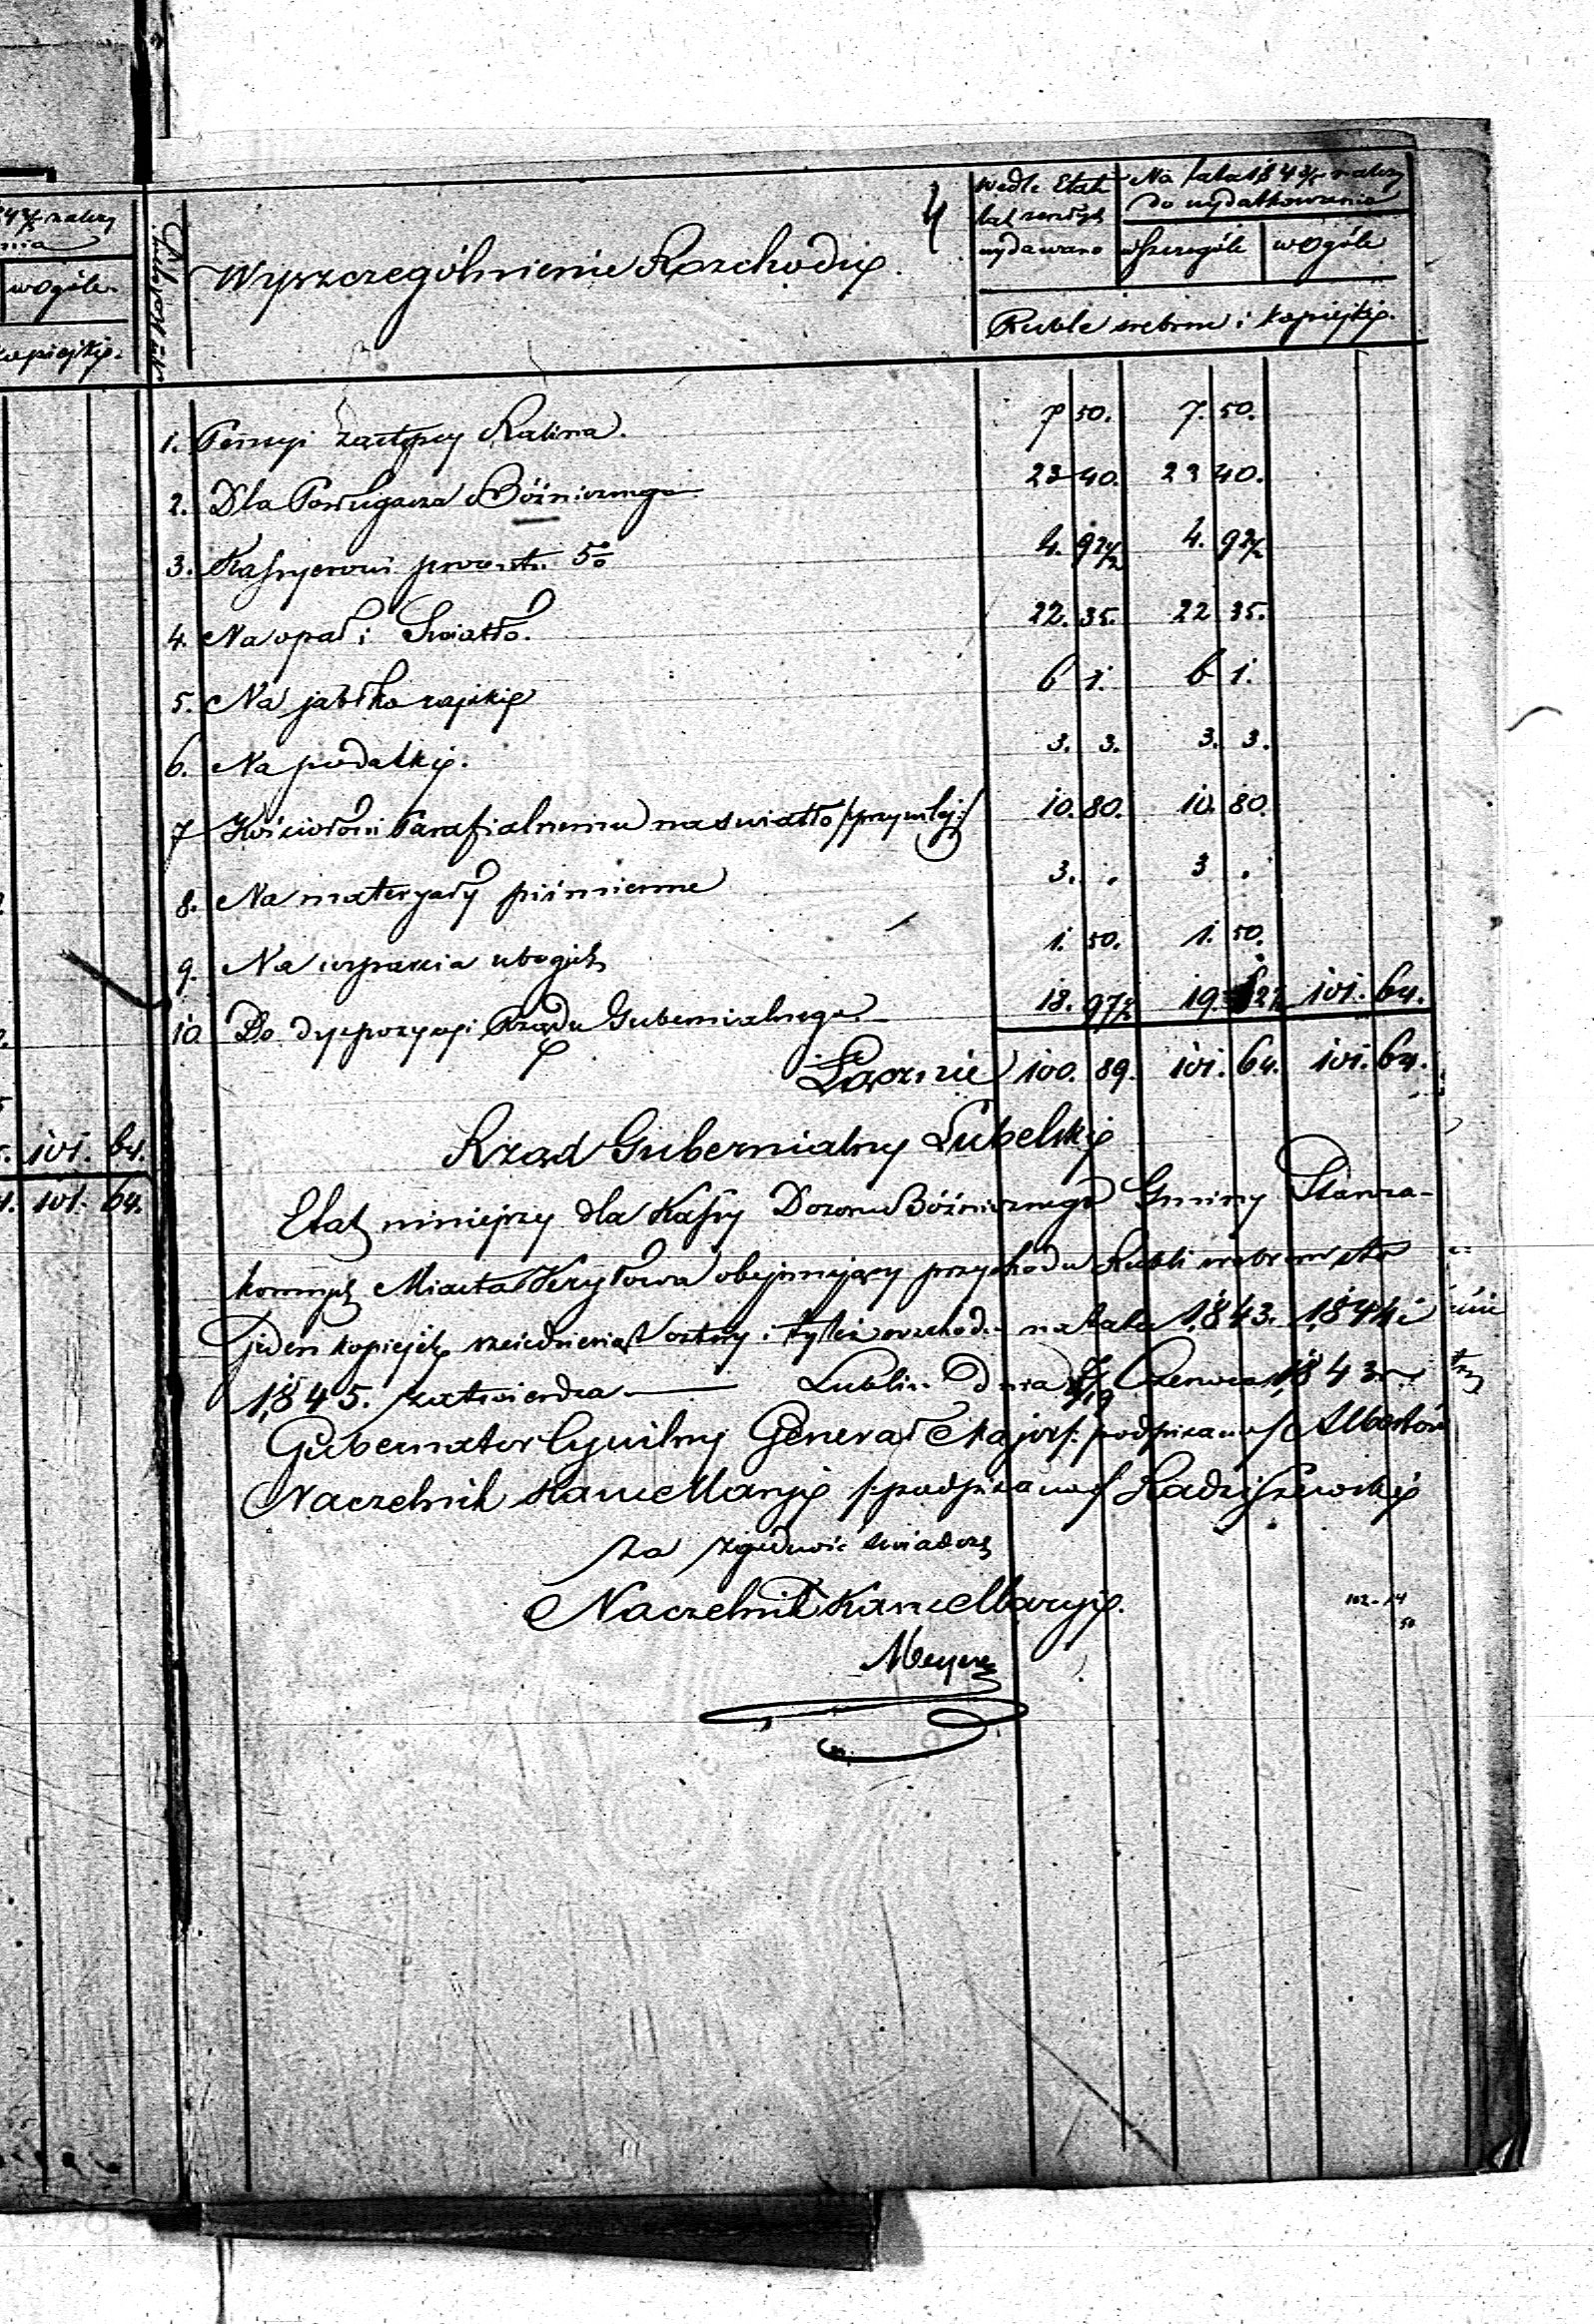 4
Wyszczególnienie Rozchodu
Wedle Etatu lat zeszłych wydawano
Na lata 184 3/5 należy do wydatkowania
w szczególe
w ogóle
Ruble srebrne i kopiejki.
1. Pensyi zastępcy Rabina. 7 50. 7. 50.
2. Dla Posługacza Bóźnicznego 23 40. 23 40.
3. Kassyerowi procentu 5% 4. 92½ 4. 92½
4. Na opał i Swiatło. 22. 35. 22 35.
5. Na jabłka rajskie 6 1. 6 1.
6. Na podatki. 3. 3. 3. 3.
7 Kościołowi Parafialnemu na swiatło /:przywilej:/ 10. 80. 10. 80.
8. Na materyały piśmienne 3. . 3 .
9. Na wsparcia ubogich 1. 50. 1. 50.
10 Do dyspozycyi Rządu Gubernialnego. 18. 97½ 19. 101. 64.
Łącznie 100. 89. 101. 64. 101. 64.
Rząd Gubernialny Lubelski
Etat niniejszy dla Kassy Dozoru Bóźnicznego Gminy Starza-
konnych Miasta Kryłowa obejmujący przychodu Rubli srebrem sto
jeden kopiejek sześćdziesiąt cztery i tyleż rozchodu na lata 1843. 1844 i
1845. zatwierdza — Lublin dnia Czerwca 1843 r.
Gubernator Cywilny Generał Major /:podpisano:/ Albertów
Naczelnik Kancellaryi /:podpisano:/ Radziszewski
Za zgodność swiadczy
Naczelnik Kancellaryi.
Meyer
w ogóle
kopiejki.
101. 64.
101. 64.